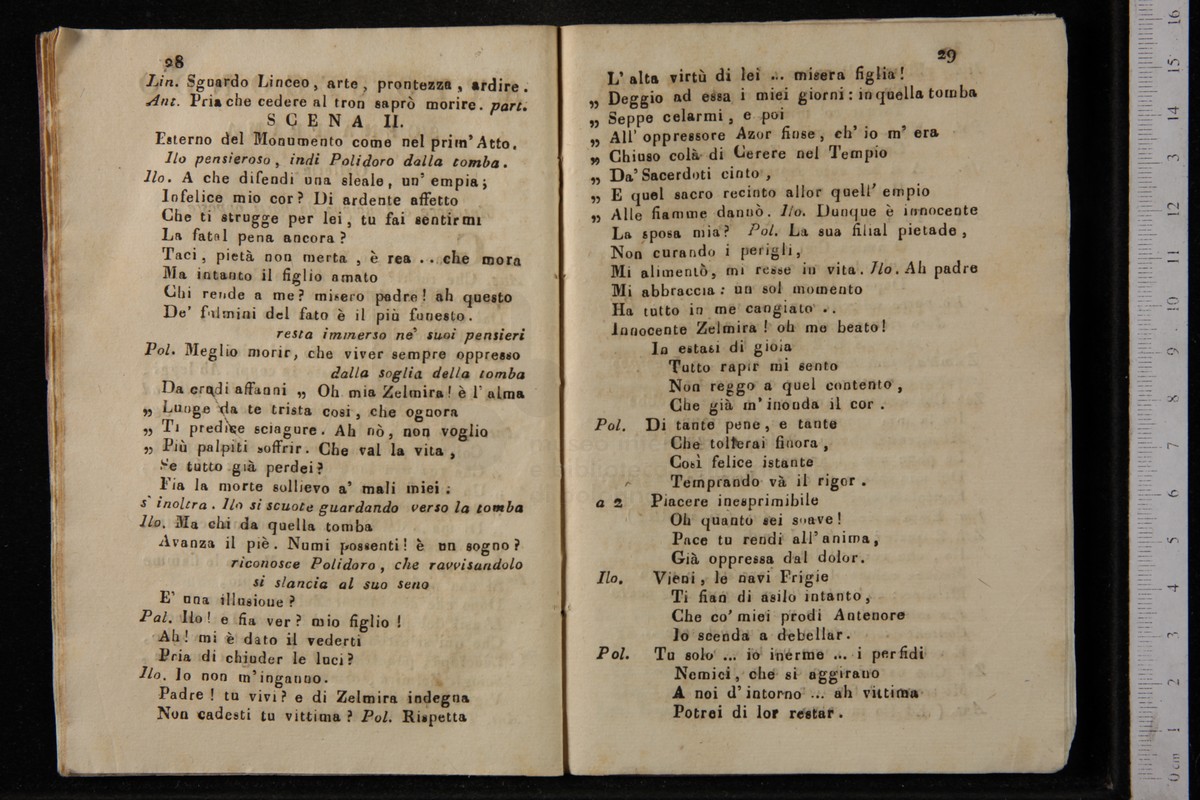 28
Lin. Sguardo Linceo, arte, prontezza, ardire.
Ant. Pria che cedere al tron saprò morire. part.
SCENA II.
Esterno del Monumento come nel prim' Atto.
Ilo pensieroso, indi Polidoro dalla tomba.
Ilo. A che difendi una sleale, un' empia;
Infelice mio cor? Di ardente affetto
Che ti strugge per lei, tu fai sentirmi
La fatal pena ancora?
Taci, pietà non merta, è rea .. che mora
Ma intanto il figlio amato
Chi rende a me? misero padre! ah questo
De' fulmini del fato è il più funesto.
resta immerso ne' suoi pensieri
Pol. Meglio morir, che viver sempre oppresso
dalla soglia della tomba
Da crudi affanni „ Oh mia Zelmira! è l' alma
„ Lunge da te trista così, che ognora
„ Ti predice sciagure. Ah nò, non voglio
„ Più palpiti soffrir. Che val la vita,
Se tutto già perdei?
Fia la morte sollievo a' mali miei:
s' inoltra. Ilo si scuote guardando verso la tomba
Ilo. Ma chi da quella tomba
Avanza il piè. Numi possenti! è un sogno?
riconosce Polidoro, che ravvisandolo
si slancia al suo seno
E' una illusione?
Pol. Ilo! e fia ver? mio figlio!
Ah! mi è dato il vederti
Pria di chiuder le luci?
Ilo. Io non m'inganno.
Padre! tu vivi? e di Zelmira indegna
Non cadesti tu vittima? Pol. Rispetta
29
L' alta virtù di lei ... misera figlia!
„ Deggio ad essa i miei giorni: in quella tomba
„ Seppe celarmi, e poi
„ All' oppressore Azor finse, ch' io m' era
„ Chiuso colà di Cerere nel Tempio
„ Da' Sacerdoti cinto,
„ E quel sacro recinto allor quell' empio
„ Alle fiamme dannò. Ilo. Dunque è innocente
La sposa mia? Pol. La sua filial pietade,
Non curando i perigli,
Mi alimentò, mi resse in vita. Ilo. Ah padre
Mi abbraccia: un sol momento
Ha tutto in me cangiato ..
Innocente Zelmira! oh me beato!
In estasi di gioia
Tutto rapir mi sento
Non reggo a quel contento,
Che già m'inonda il cor.
Pol. Di tante pene, e tante
Che tollerai finora,
Così felice istante
Temprando và il rigor.
a 2 Piacere inesprimibile
Oh quanto sei soave!
Pace tu rendi all' anima,
Già oppressa dal dolor.
Ilo. Vieni, le navi Frigie
Ti fian di asilo intanto,
Che co' miei prodi Antenore
Io scenda a debellar.
Pol. Tu solo ... io inerme ... i perfidi
Nemici, che si aggirano
A noi d' intorno ... ah vittima
Potrei di lor restar.
0 cm 1 2 3 4 5 6 7 8 9 10 11 12 13 14 15 16